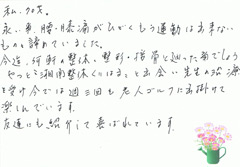 私、70才。
永い事、腰・膝痛がひどくもう運動は出来ない
ものと諦めていました。
今迄、何軒の整体・整形・指骨と廻った事でしょう
やっとこ湘南整体くりはまと出会い先生の治療
を受け今では週三回も老人ゴルフにお掛けて
楽しんでいます。
友達にも紹介して喜ばれています。